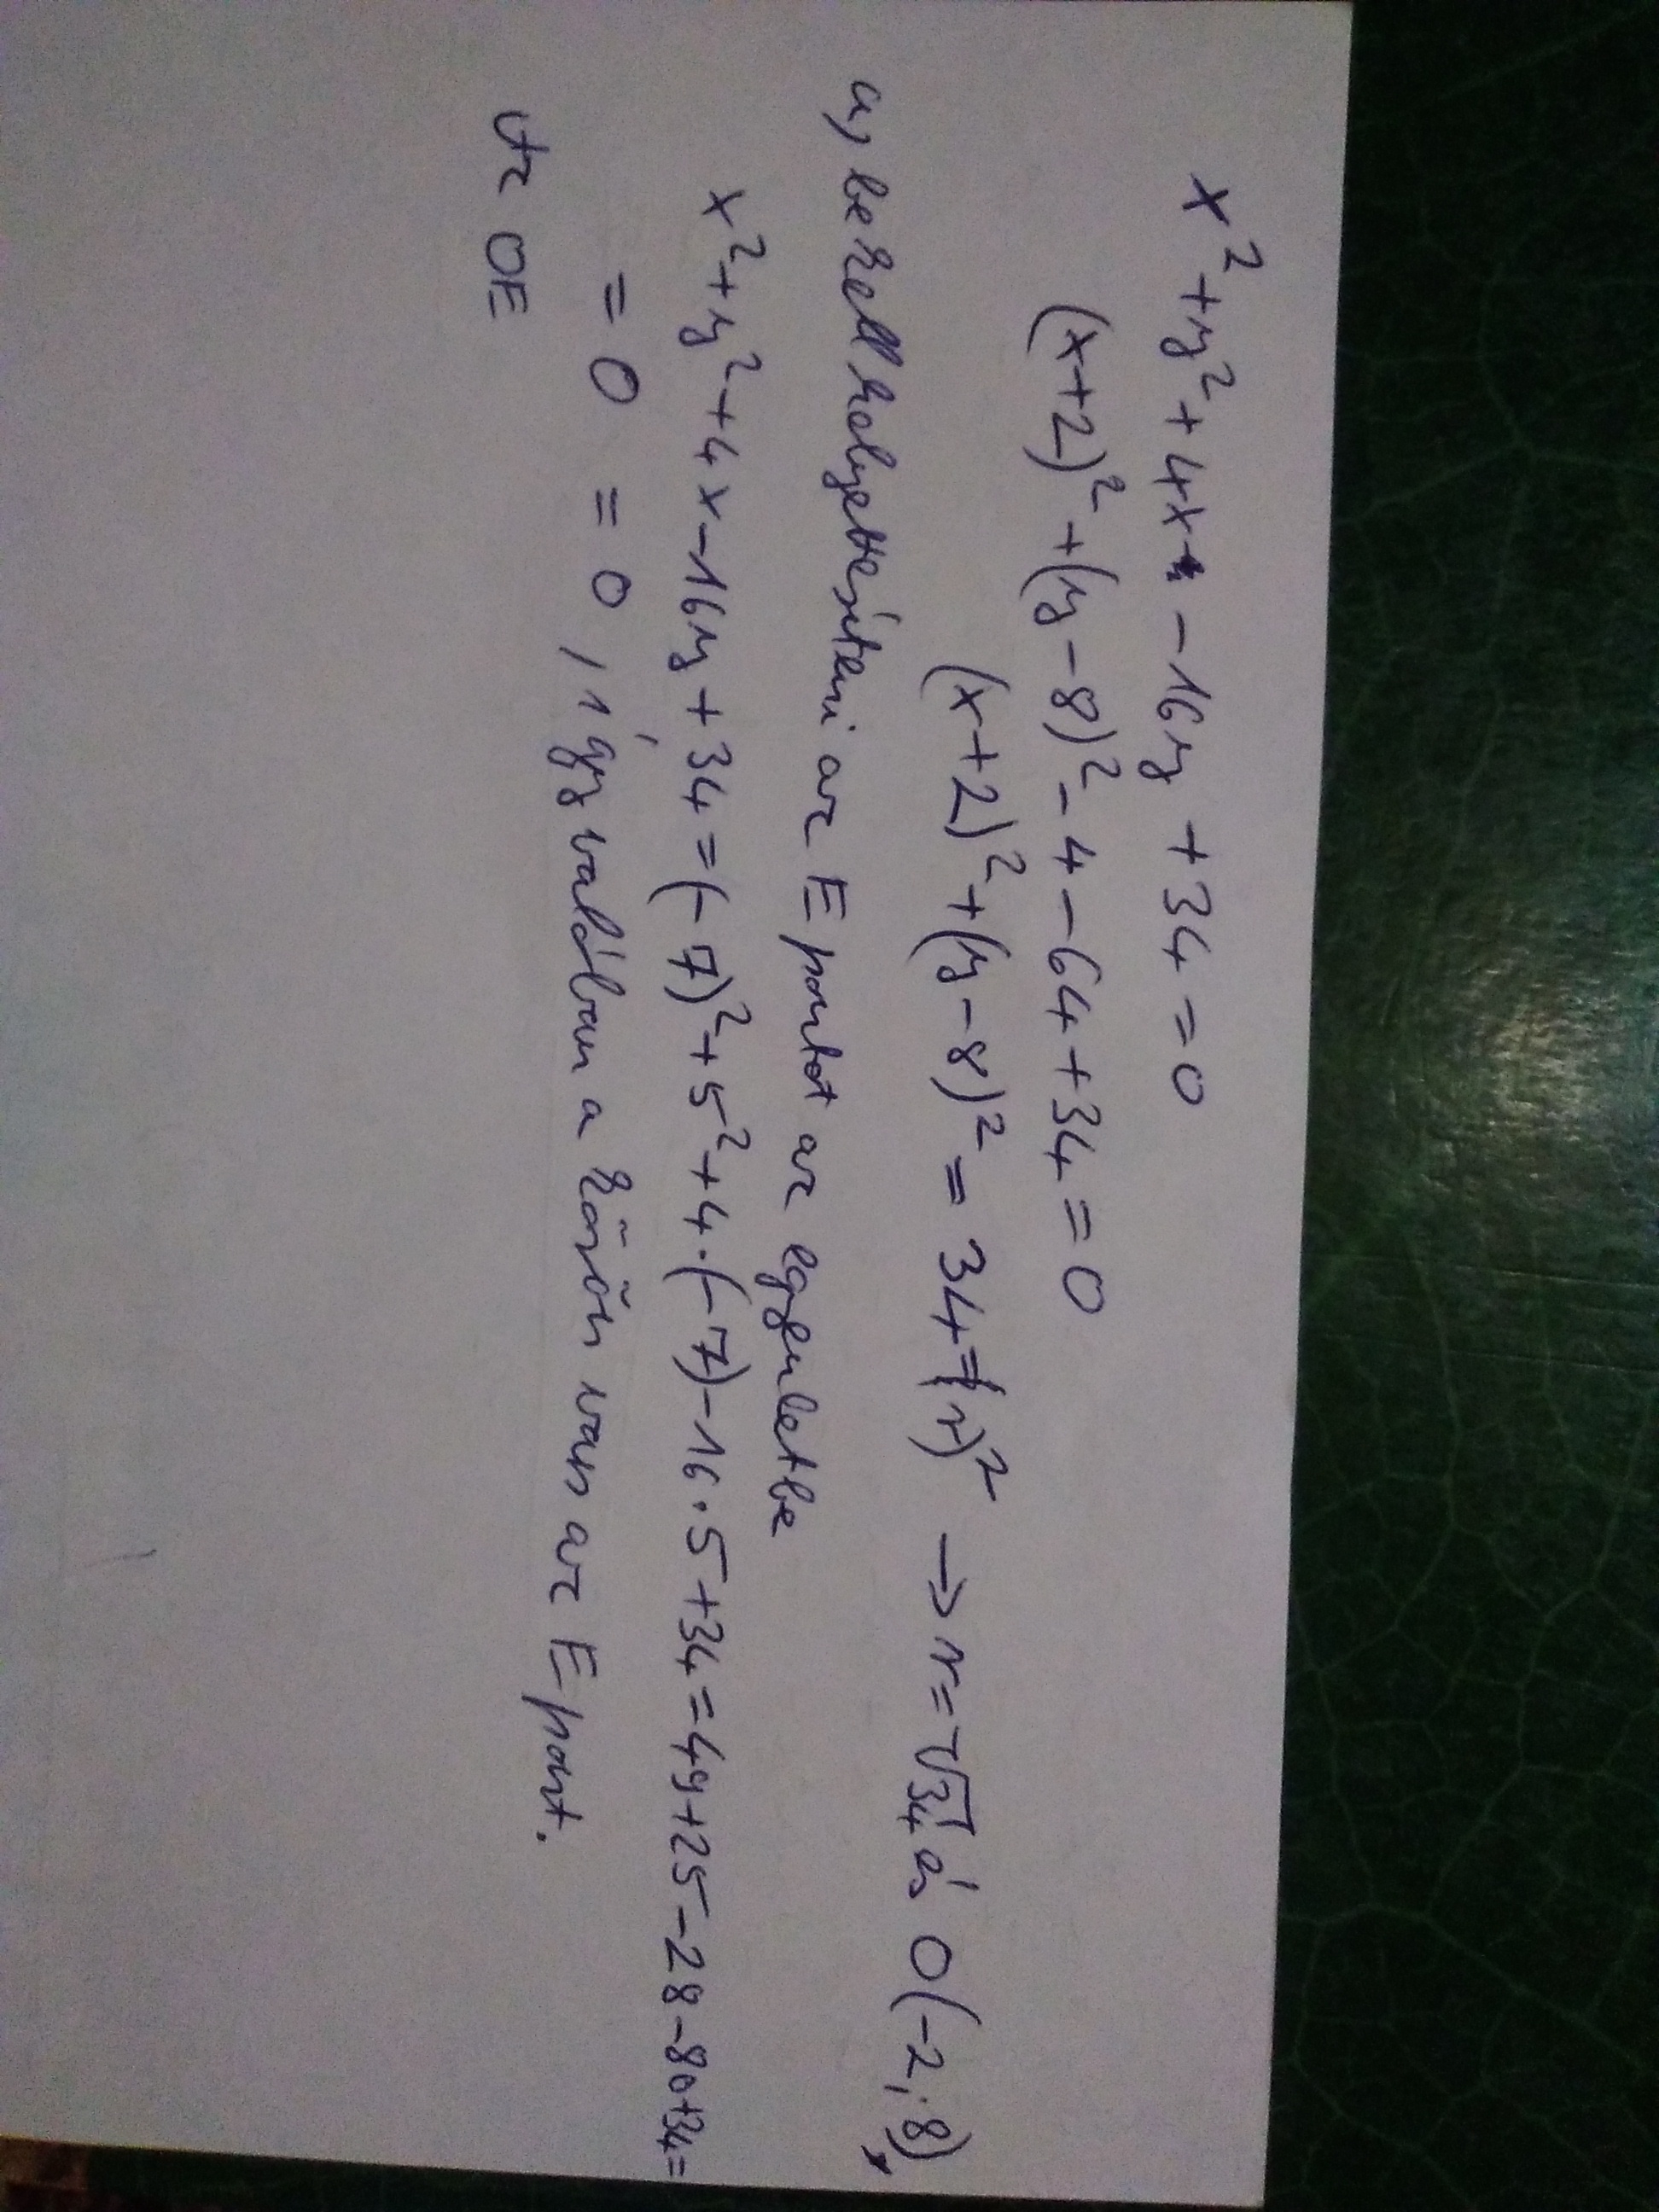 x²+y²+4x-16y+34=0
(x+2)²+(y-8)²-4-64+34=0
(x+2)²+(y-8)²=34=(r)² → r=√34 és O(-2;8),
a, be kell helyettesíteni az E pontot az egyenletbe
x²+y²+4x-16y+34=(-7)²+5²+4·(-7)-16·5+34=49+25-28-80+34=
=0 =0, így valóban a körön van az E pont.
Az OE